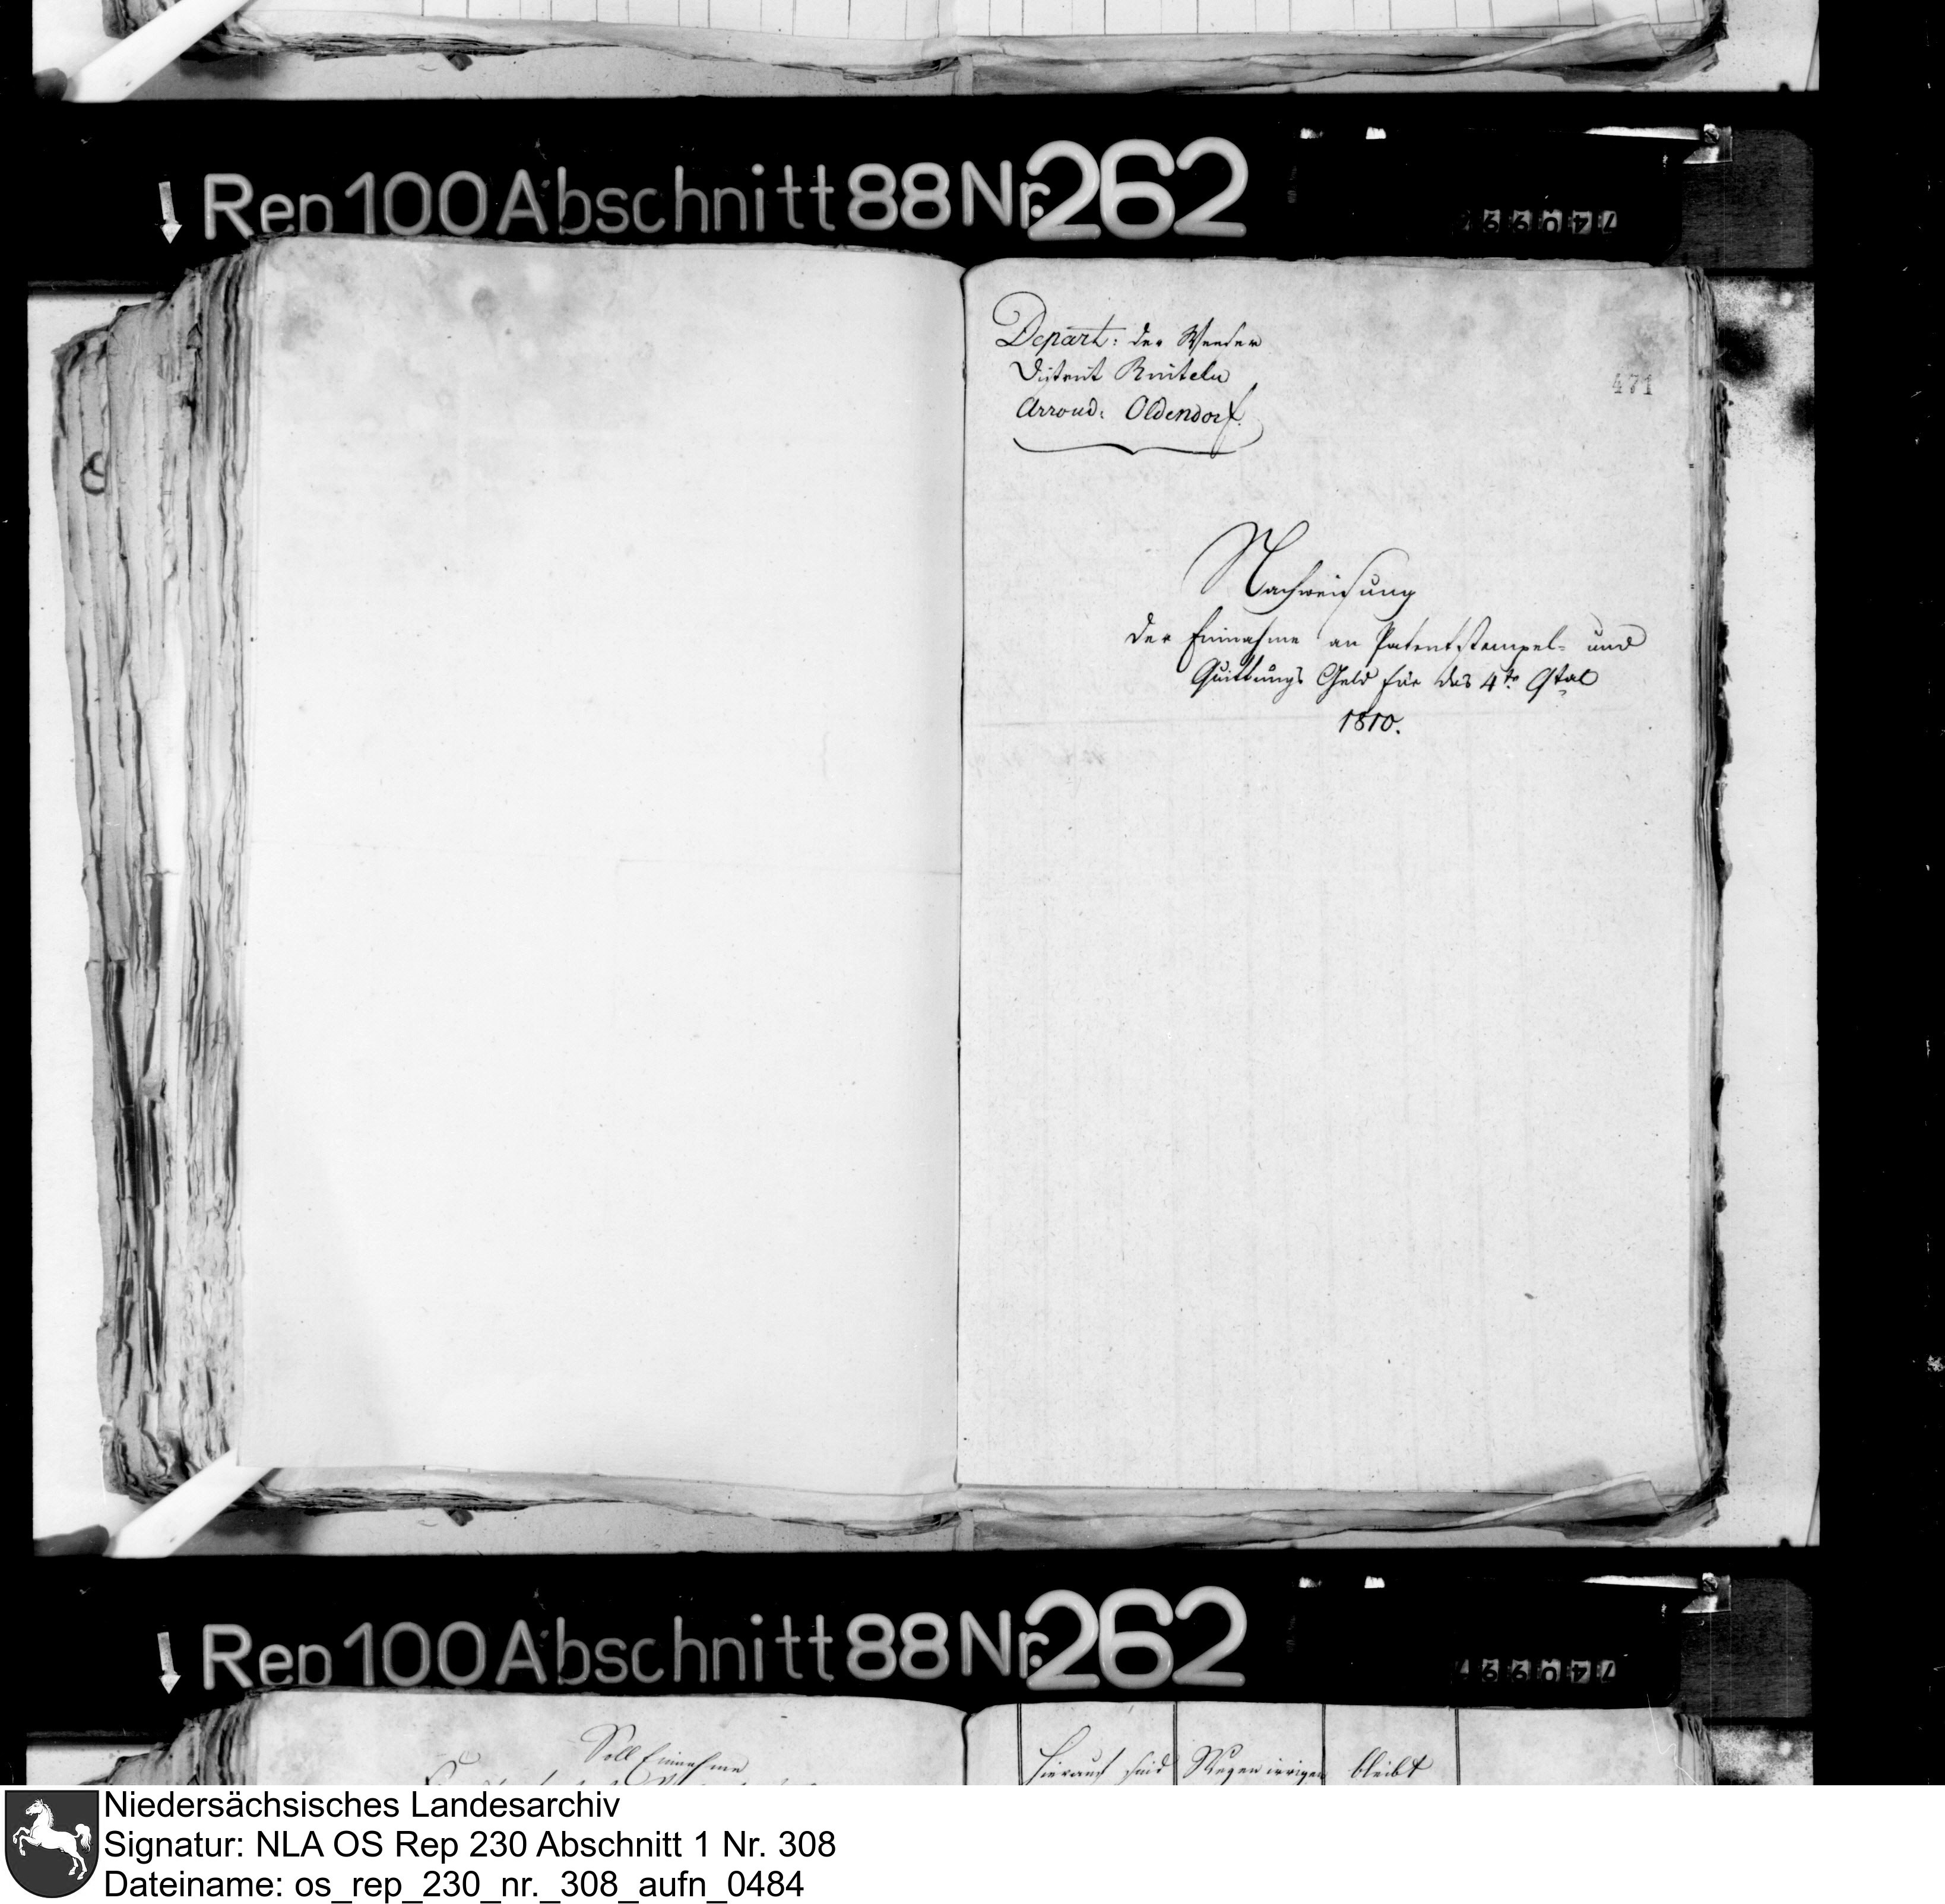 Rep 100 Abschnitt 88 Nr. 262
Depart: der Weeser
District Rinteln
471
Arrond: Oldendorf.
Nachweisung
der Einnahme an Patentstempel- und
Quittungs Geld für das 4te Qtal
1810.
Rep 100 Abschnitt 88 Nr. 262
Soll Einnahme
hierauf sind
Wegen irrigen
bleibt
Niedersächsisches Landesarchiv
Signatur: NLA OS Rep 230 Abschnitt 1 Nr. 308
Dateiname: os_rep_230_nr._308_aufn_0484